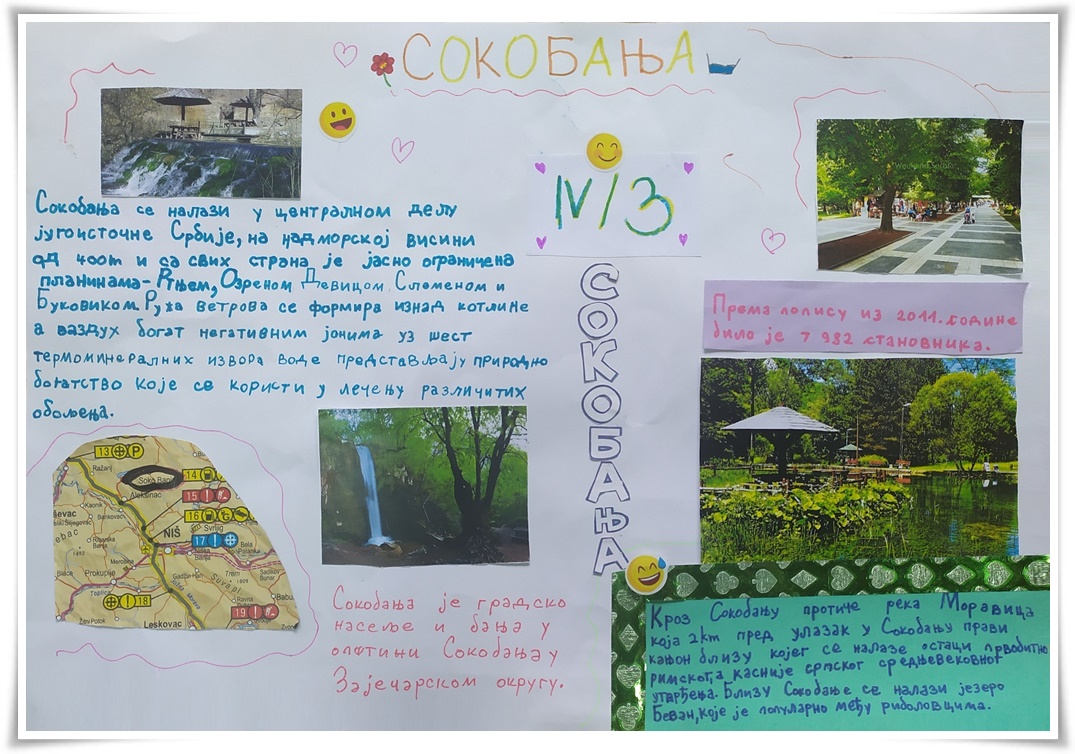 СОКОБАЊА
IV/3
Сокобања се налази у централном делу
југоисточне Србије, на надморској висини
од 400m и са свих страна је јасно ограничена
планинама- Ртњем, Озреном Девицом Слеменом и
Буковиком. Ружа ветрова се формира изнад котлине
а ваздух богат негативним јонима уз шест
термоминералних извора воде представљају природно
богатство које се користи у лечењу различитих
обољења.
СОКОБАЊА
Према попису из 2011. године
било је 7 982 становника.
13 P
Ražanj
Soko Banja
14
Aleksinac
15
16
Svrljig
NIŠ
17
Bela
Palanka
Prokuplje
18
19
Leskovac
Сокобања је градско
насеље и бања у
општини Сокобања у
Зајечарском округу.
Кроз Сокобању протиче река Моравица
која 2km пред улазак у Сокобању прави
кањон близу којег се налазе остаци првобитно
римског, а касније српског средњевековног
утврђења. Близу Сокобање се налази језеро
Бован, које је популарно међу риболовцима.